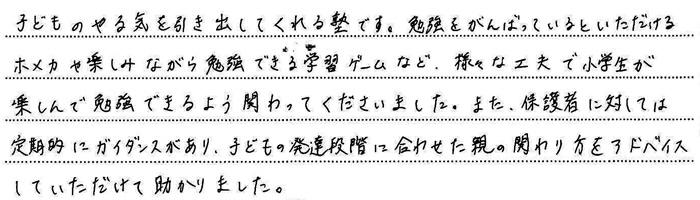 子どものやる気を引き出してくれる塾です。勉強をがんばっているといただける
ホメカや楽しみながら勉強できる学習ゲームなど、様々な工夫で小学生が
楽しんで勉強できるよう関わってくださいました。また、保護者に対しては
定期的にガイダンスがあり、子どもの発達段階に合わせた親の関わり方をアドバイス
していただけて助かりました。